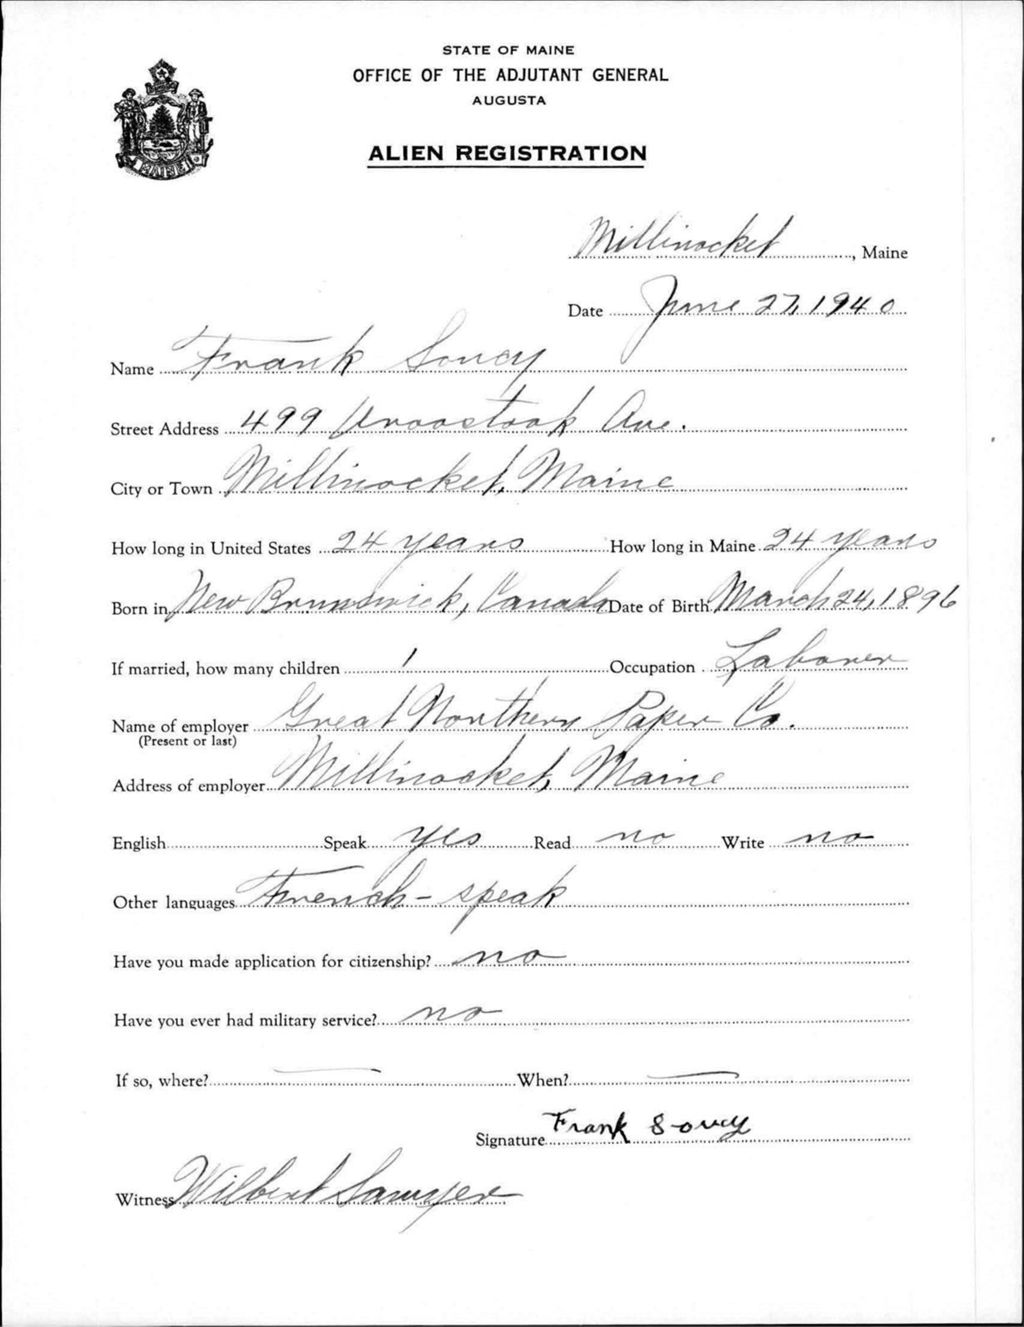 STATE OF MAINE
OFFICE OF THE ADJUTANT GENERAL
AUGUSTA
ALIEN REGISTRATION
MAINE
Millinocket, Maine
Date June 27, 1940
Name Frank Soucy
Street Address 499 Aroostook Ave.
City or Town Millinocket, Maine
How long in United States 24 years How long in Maine 24 years
Born in New Brunswick, Canada Date of Birth March 24, 1896
If married, how many children 1 Occupation Laborer
Name of employer Great Northern Paper Co.
(Present or last)
Address of employer Millinocket, Maine
English Speak yes Read no Write no
Other languages French - speak
Have you made application for citizenship? no
Have you ever had military service? no
If so, where? — When? —
Signature Frank Soucy
Witness Wilbert Sawyer